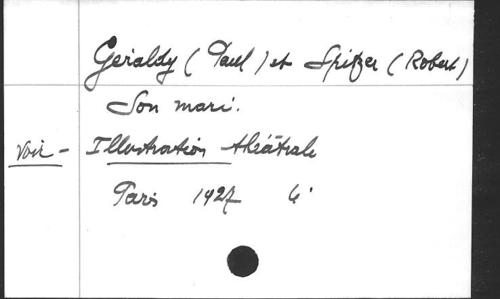 Geraldy (Paul) et Spitzer (Robert)
Son mari.
Voir - Illustration théâtrale
Paris 1927 4°